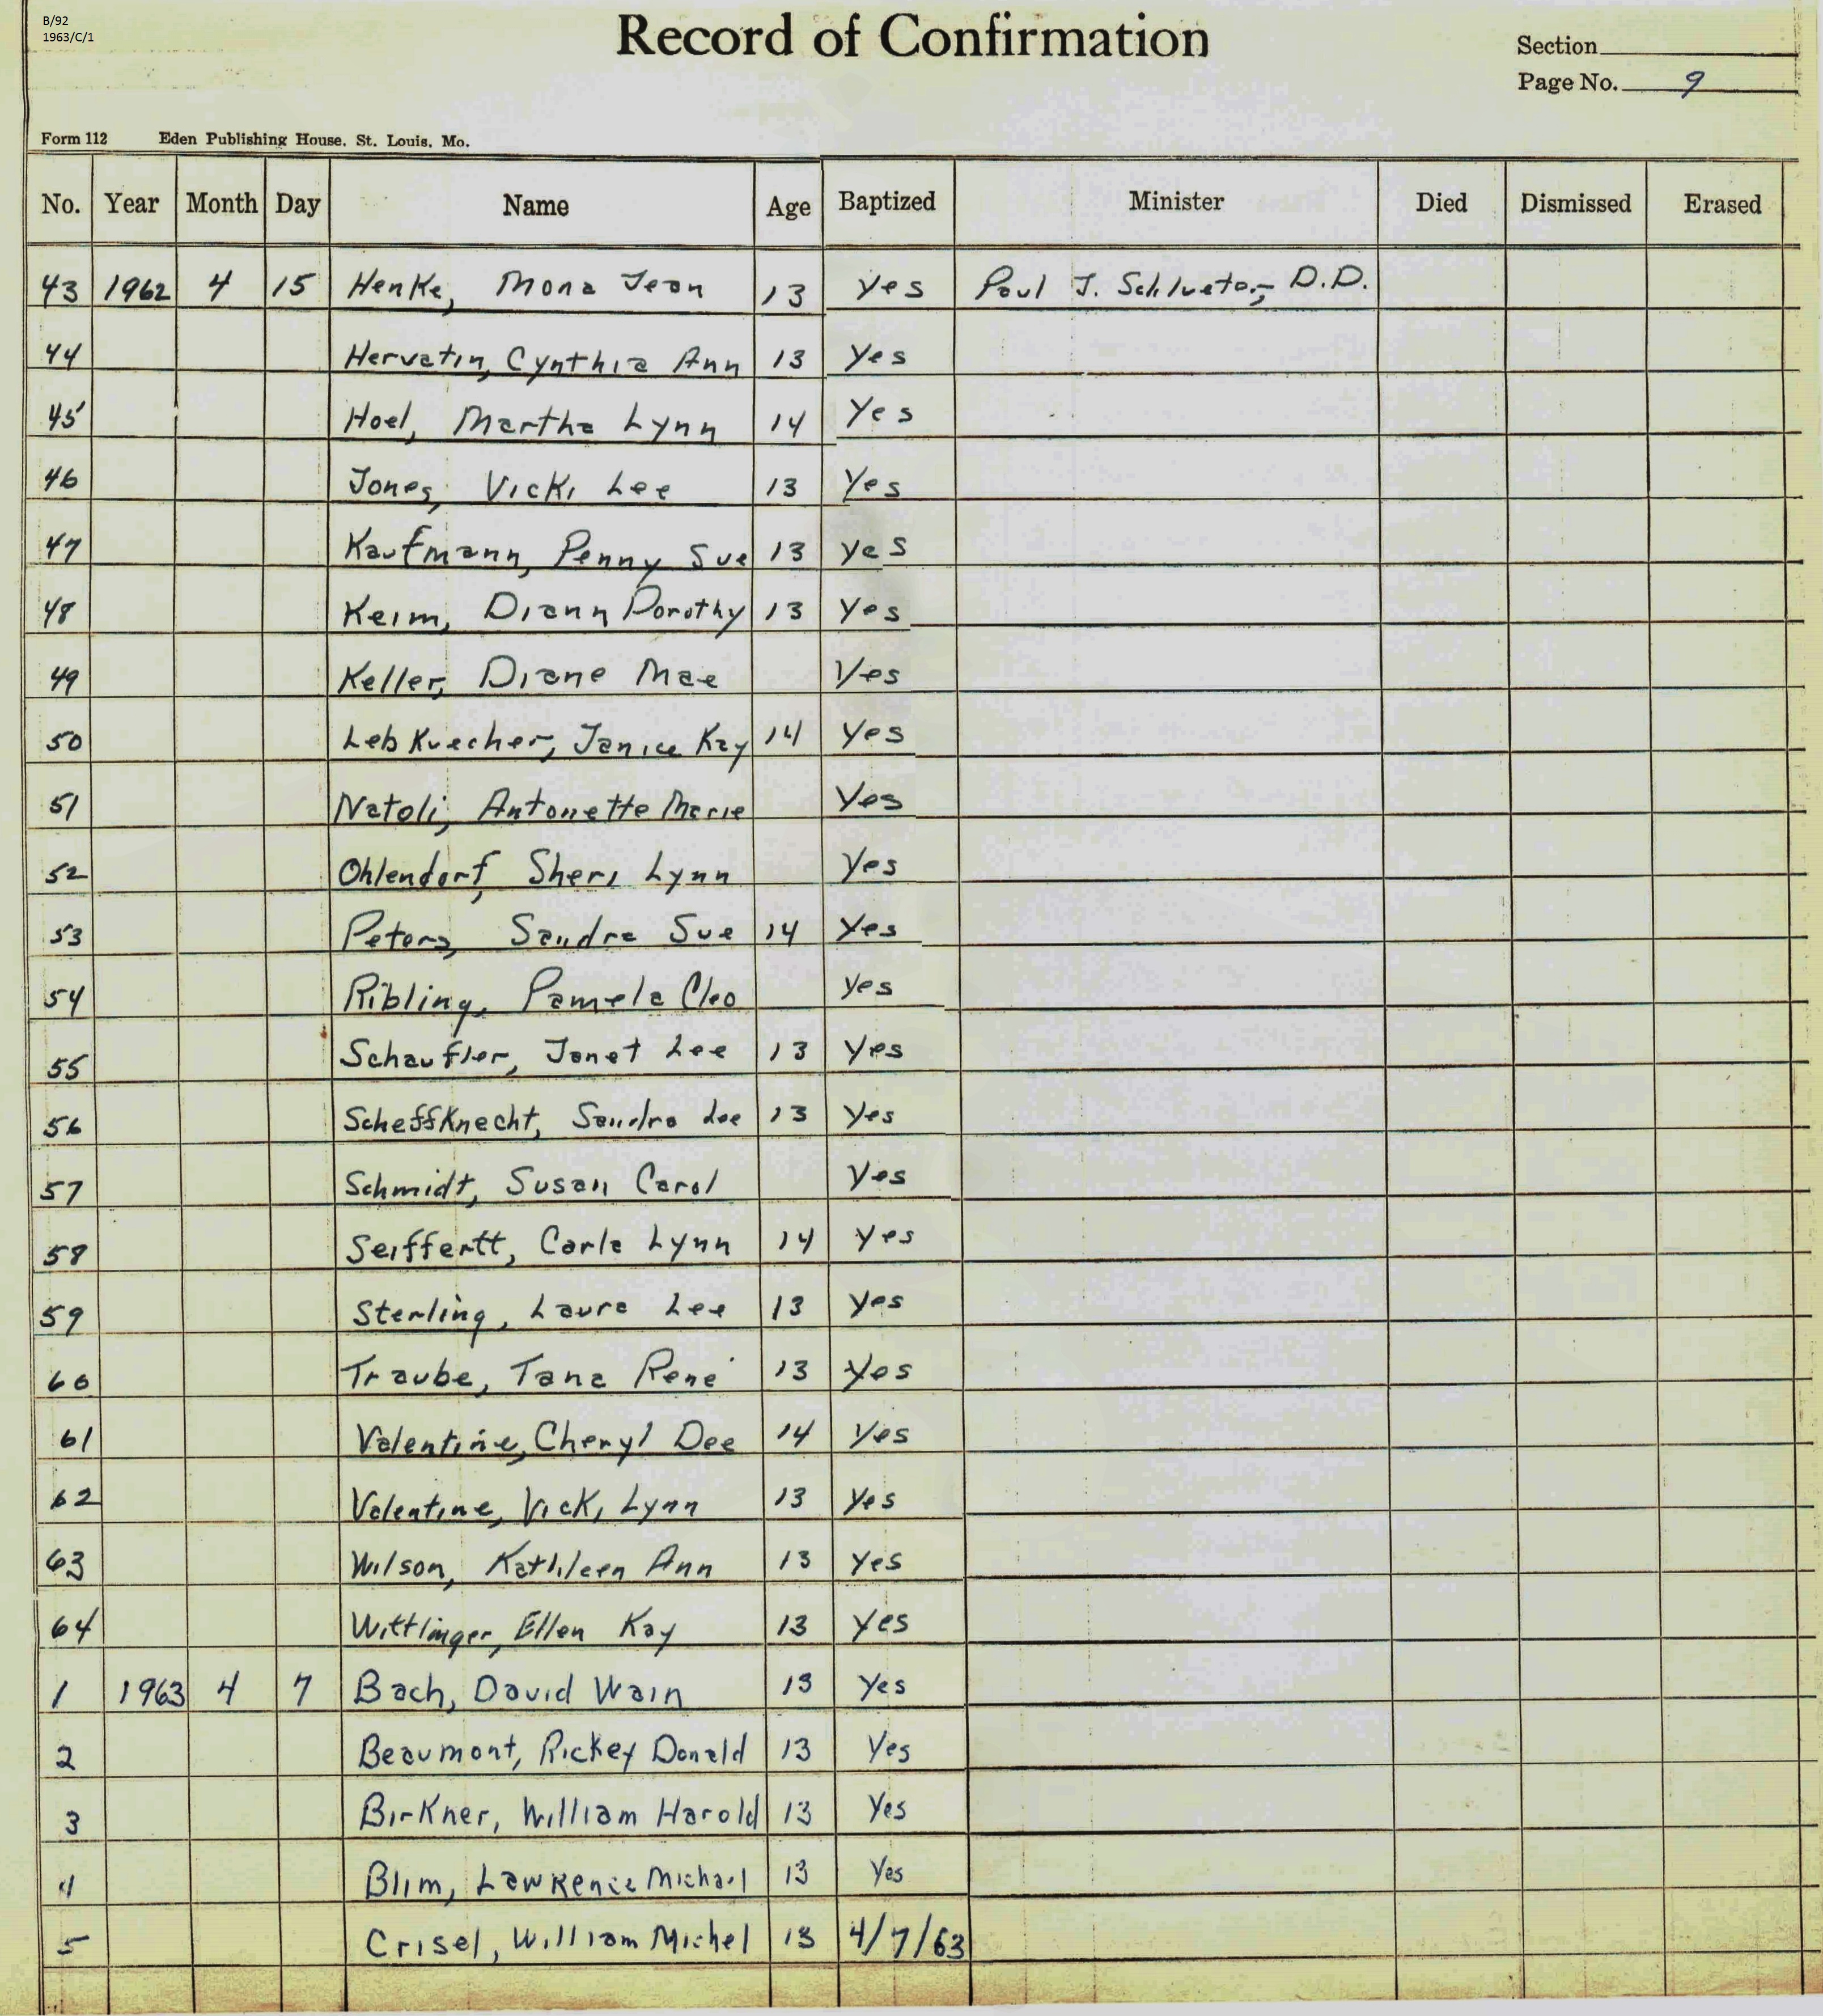 B/92
1963/C/1
Record of Confirmation
Section
Page No. 9
Form 112 Eden Publishing House, St. Louis, Mo.
No. Year Month Day Name Age Baptized Minister Died Dismissed Erased
43 1962 4 15 Henke, Mona Jean 13 yes Paul J. Schlueter, D.D.
44 Hervatin, Cynthia Ann 13 Yes
45 Hoel, Martha Lynn 14 Yes
46 Jones, Vicki Lee 13 Yes
47 Kaufmann, Penny Sue 13 yes
48 Keim, Diann Dorothy 13 Yes
49 Keller, Diane Mae Yes
50 Lebkuecher, Janice Kay 14 Yes
51 Natoli, Antonette Marie Yes
52 Ohlendorf, Sheri Lynn Yes
53 Peters, Sandra Sue 14 Yes
54 Ribling, Pamela Cleo yes
55 Schaufler, Janet Lee 13 Yes
56 Scheffknecht, Sandra Lee 13 Yes
57 Schmidt, Susan Carol Yes
58 Seiffertt, Carla Lynn 14 Yes
59 Sterling, Laura Lee 13 Yes
60 Traube, Tana René 13 Yes
61 Valentine, Cheryl Dee 14 Yes
62 Valentine, Vicki Lynn 13 Yes
63 Wilson, Kathleen Ann 13 Yes
64 Wittlinger, Ellen Kay 13 Yes
1 1963 4 7 Bach, David Wain 13 Yes
2 Beaumont, Rickey Donald 13 Yes
3 Birkner, William Harold 13 Yes
4 Blim, Lawrence Michael 13 Yes
5 Crisel, William Michel 13 4/7/63